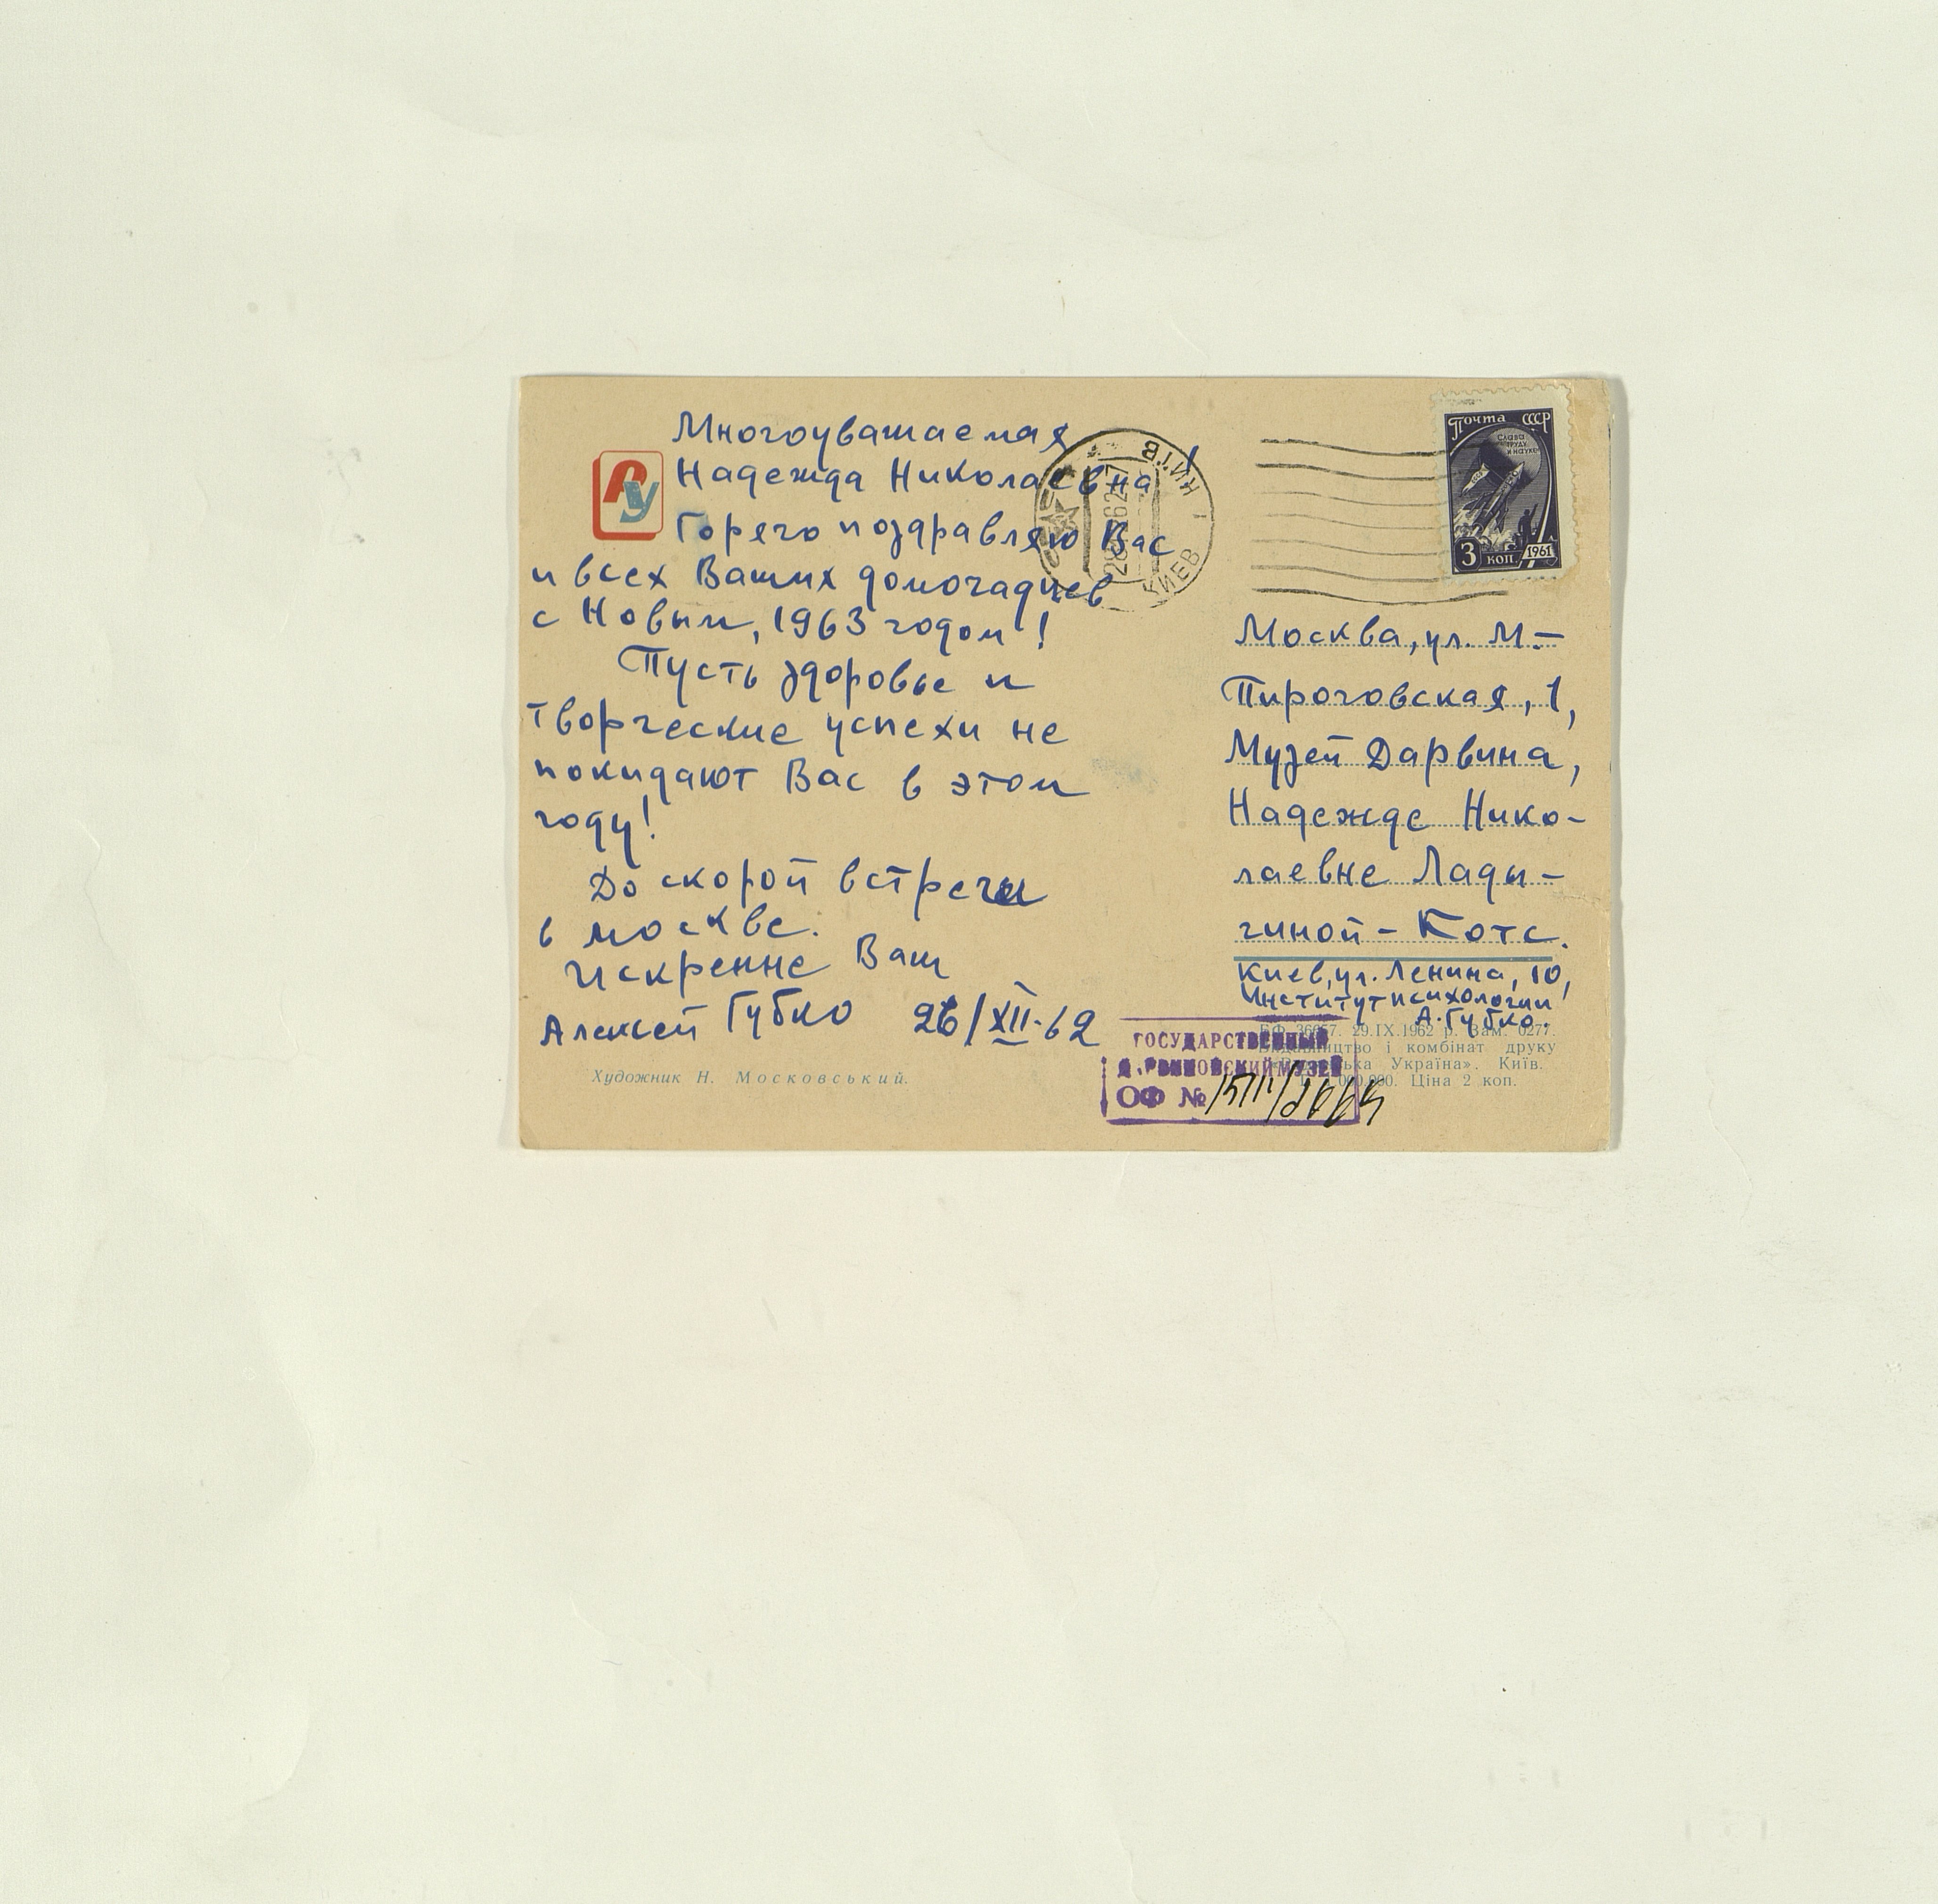 Многоуважаемая
Надежда Николаевна!
Горячо поздравляю Вас
и всех Ваших домочадцев
с Новым, 1963 годом!
Пусть здоровье и
творческие успехи не
покидают Вас в этом
году!
До скорой встречи
в Москве.
Искренне Ваш
Алексей Губко 26/XII.62
Художник Н. Московський.
РУ
КИЇВ
КИЕВ
Почта СССР
Слава
труду
и науке
3 коп. 1961
Москва, ул. М.-
Пироговская, 1,
Музей Дарвина,
Надежде Нико-
лаевне Лады-
гиной-Котс.
Киев, ул. Ленина, 10,
Институт психологии
А. Губко.
БФ 36657. 29.IX.1962 р. Зам. 0277.
Видавництво і комбінат друку
Україна». Київ.
Ціна 2 коп.
ГОСУДАРСТВЕННЫЙ
ДАРВИНОВСКИЙ МУЗЕЙ
ОФ №